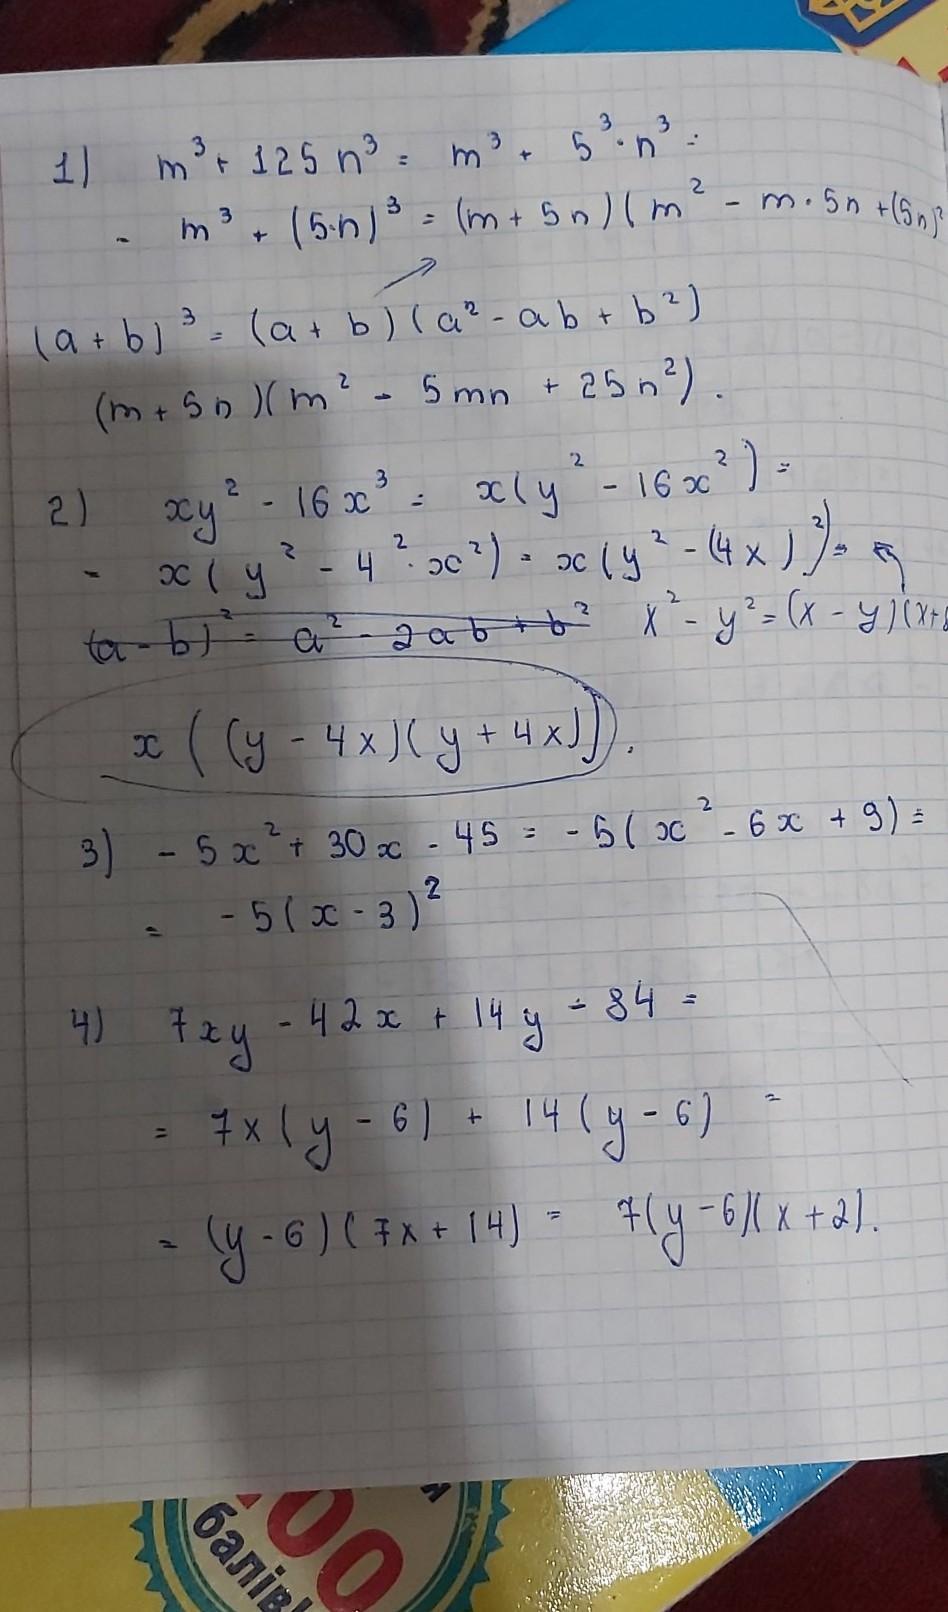 1) m³ + 125 n³ = m³ + 5³ · n³ =
= m³ + (5·n)³ = (m + 5n)(m² - m · 5n + (5n)²
(a + b)³ = (a + b)(a² - ab + b²)
(m + 5n)(m² - 5mn + 25n²).
2) xy² - 16x³ = x(y² - 16x²) =
= x(y² - 4² · x²) = x(y² - (4x)²) =
(a - b)² = a² - 2ab + b² x² - y² = (x - y)(x +
x((y - 4x)(y + 4x)).
3) - 5x² + 30x - 45 = -5(x² - 6x + 9) =
= -5(x - 3)²
4) 7xy - 42x + 14y - 84 =
= 7x(y - 6) + 14(y - 6) =
= (y - 6)(7x + 14) = 7(y - 6)(x + 2).
00
балів!